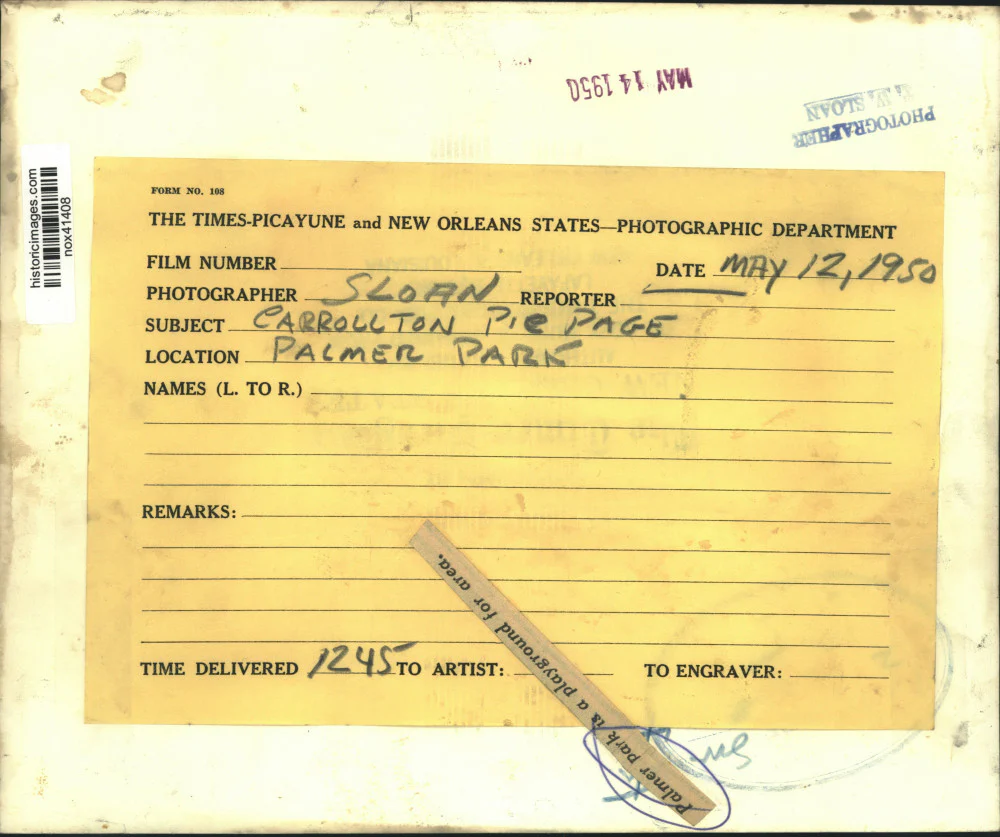 MAY 14 1950
W. SLOAN
PHOTOGRAPHER
historicimages.com
nox41408
FORM NO. 108
THE TIMES-PICAYUNE and NEW ORLEANS STATES—PHOTOGRAPHIC DEPARTMENT
FILM NUMBER
DATE MAY 12, 1950
PHOTOGRAPHER SLOAN REPORTER
SUBJECT CARROLLTON Pic PAGE
LOCATION PALMER PARK
NAMES (L. TO R.)
REMARKS:
Palmer park is a playground for area.
TIME DELIVERED 1245 TO ARTIST: TO ENGRAVER: